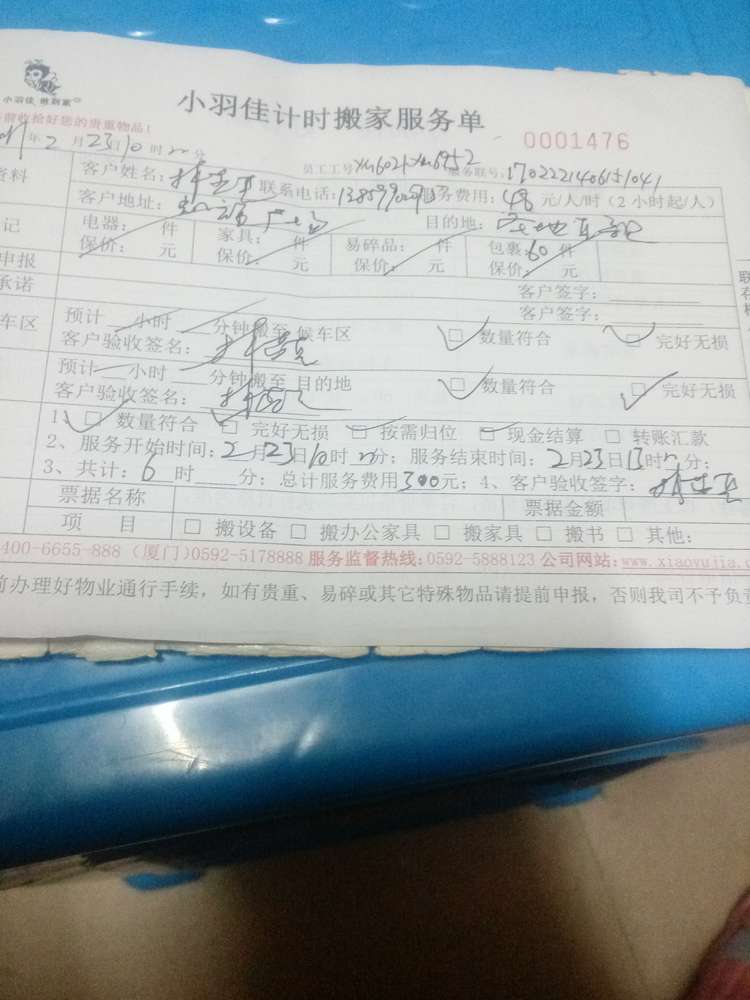 小羽佳 做到家
小羽佳计时搬家服务单
前收拾好您的贵重物品!
0001476
年2月23日10时 分
员工工号 服务联号: 1702221406151041
资料 客户姓名: 联系电话: 服务费用: 48 元/人/时 (2小时起/人)
客户地址: 目的地:
记 电器: 件 家具: 件 易碎品: 件 包裹: 60 件
保价: 元 保价: 元 保价: 元 保价: 元
申报 客户签字:
承诺 客户签字:
车区 预计 小时 分钟搬至 候车区 □ 数量符合 □ 完好无损
客户验收签名:
预计 小时 分钟搬至 目的地 □ 数量符合 □ 完好无损
客户验收签名:
1、□ 数量符合 □ 完好无损 □ 按需归位 □ 现金结算 □ 转账汇款
2、服务开始时间: 2月23日10时 分; 服务结束时间: 2月23日13时 分;
3、共计: 6 时 分; 总计服务费用300元; 4、客户验收签字:
票据名称 票据金额
项 目 □ 搬设备 □ 搬办公家具 □ 搬家具 □ 搬书 □ 其他:
400-6655-888 (厦门)0592-5178888 服务监督热线:0592-5888123 公司网站:www.xiaoyujia.
前办理好物业通行手续，如有贵重、易碎或其它特殊物品请提前申报，否则我司不予负责